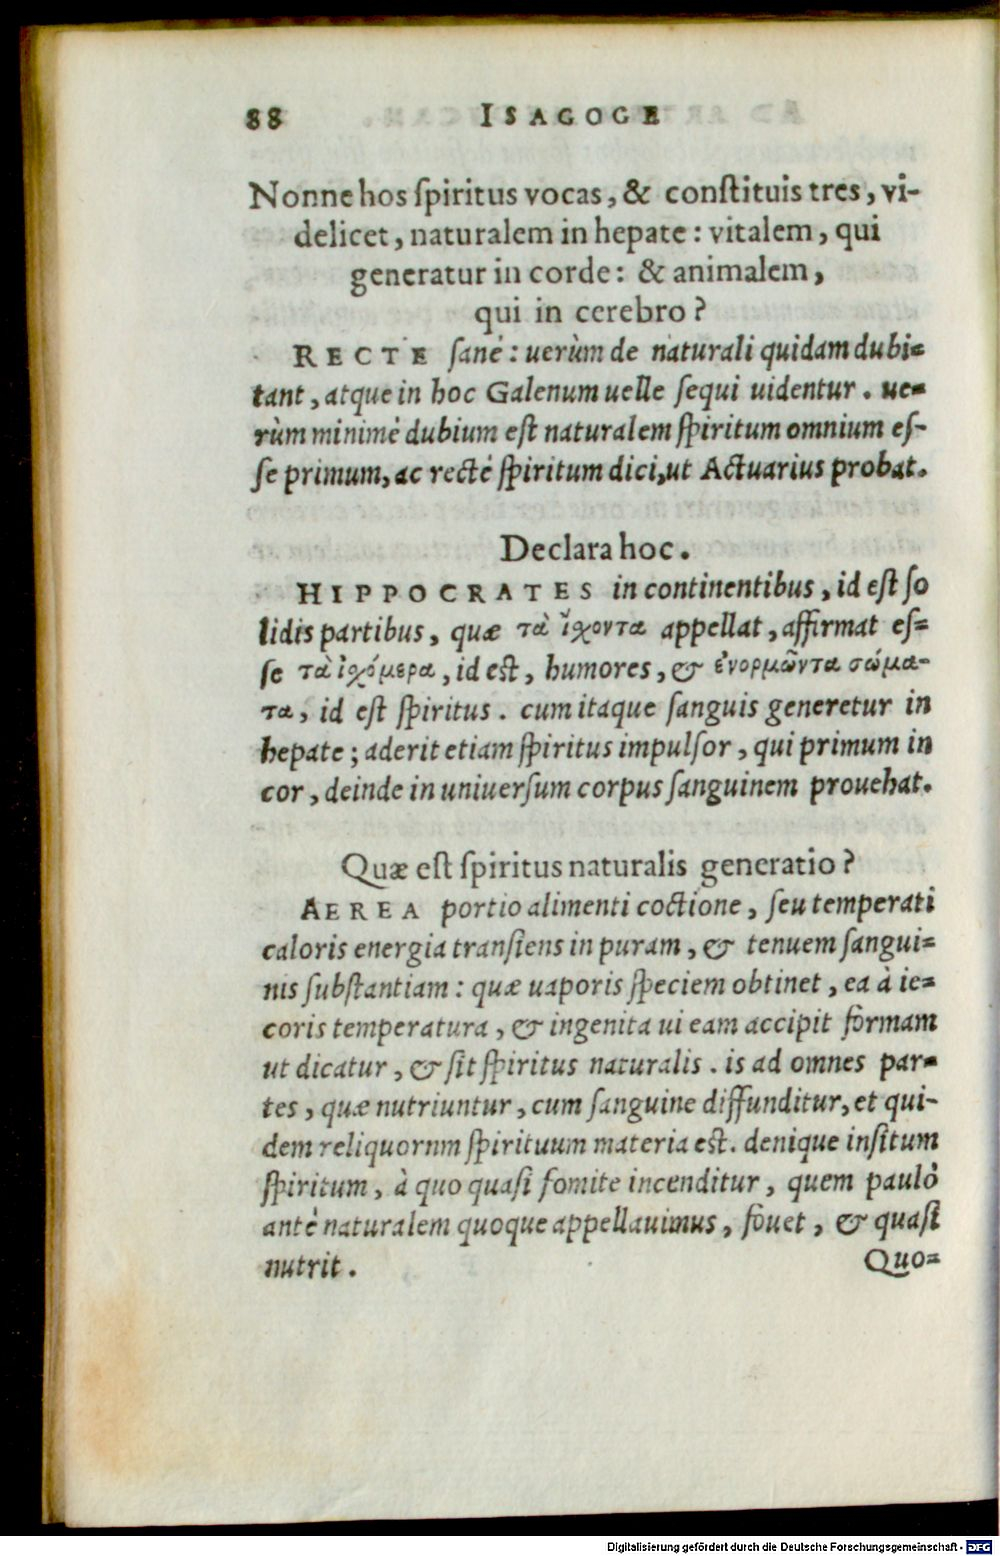 88 ISAGOGE
Nonne hos ſpiritus vocas, & conſtituis tres, vi-
delicet, naturalem in hepate: vitalem, qui
generatur in corde: & animalem,
qui in cerebro?
RECTE ſanè: uerùm de naturali quidam dubi-
tant, atque in hoc Galenum uelle ſequi uidentur. ue-
rùm minimè dubium eſt naturalem ſpiritum omnium eſ-
ſe primum, ac rectè ſpiritum dici, ut Actuarius probat.
Declara hoc.
HIPPOCRATES in continentibus, id eſt ſo
lidis partibus, quæ τὰ ἴχοντα appellat, affirmat eſ-
ſe τὰ ἰχόμερα, id eſt, humores, & ἐνορμῶντα σώμα-
τα, id eſt ſpiritus. cum itaque ſanguis generetur in
hepate; aderit etiam ſpiritus impulſor, qui primum in
cor, deinde in uniuerſum corpus ſanguinem prouehat.
Quæ eſt ſpiritus naturalis generatio?
AEREA portio alimenti coctione, ſeu temperati
caloris energia tranſiens in puram, & tenuem ſangui-
nis ſubſtantiam: quæ uaporis ſpeciem obtinet, ea à ie-
coris temperatura, & ingenita ui eam accipit formam
ut dicatur, & ſit ſpiritus naturalis. is ad omnes par-
tes, quæ nutriuntur, cum ſanguine diffunditur, et qui-
dem reliquornm ſpirituum materia eſt. denique inſitum
ſpiritum, à quo quaſi fomite incenditur, quem paulò
antè naturalem quoque appellauimus, fouet, & quaſi
nutrit. Quo-
Digitalisierung gefördert durch die Deutsche Forschungsgemeinschaft - DFG